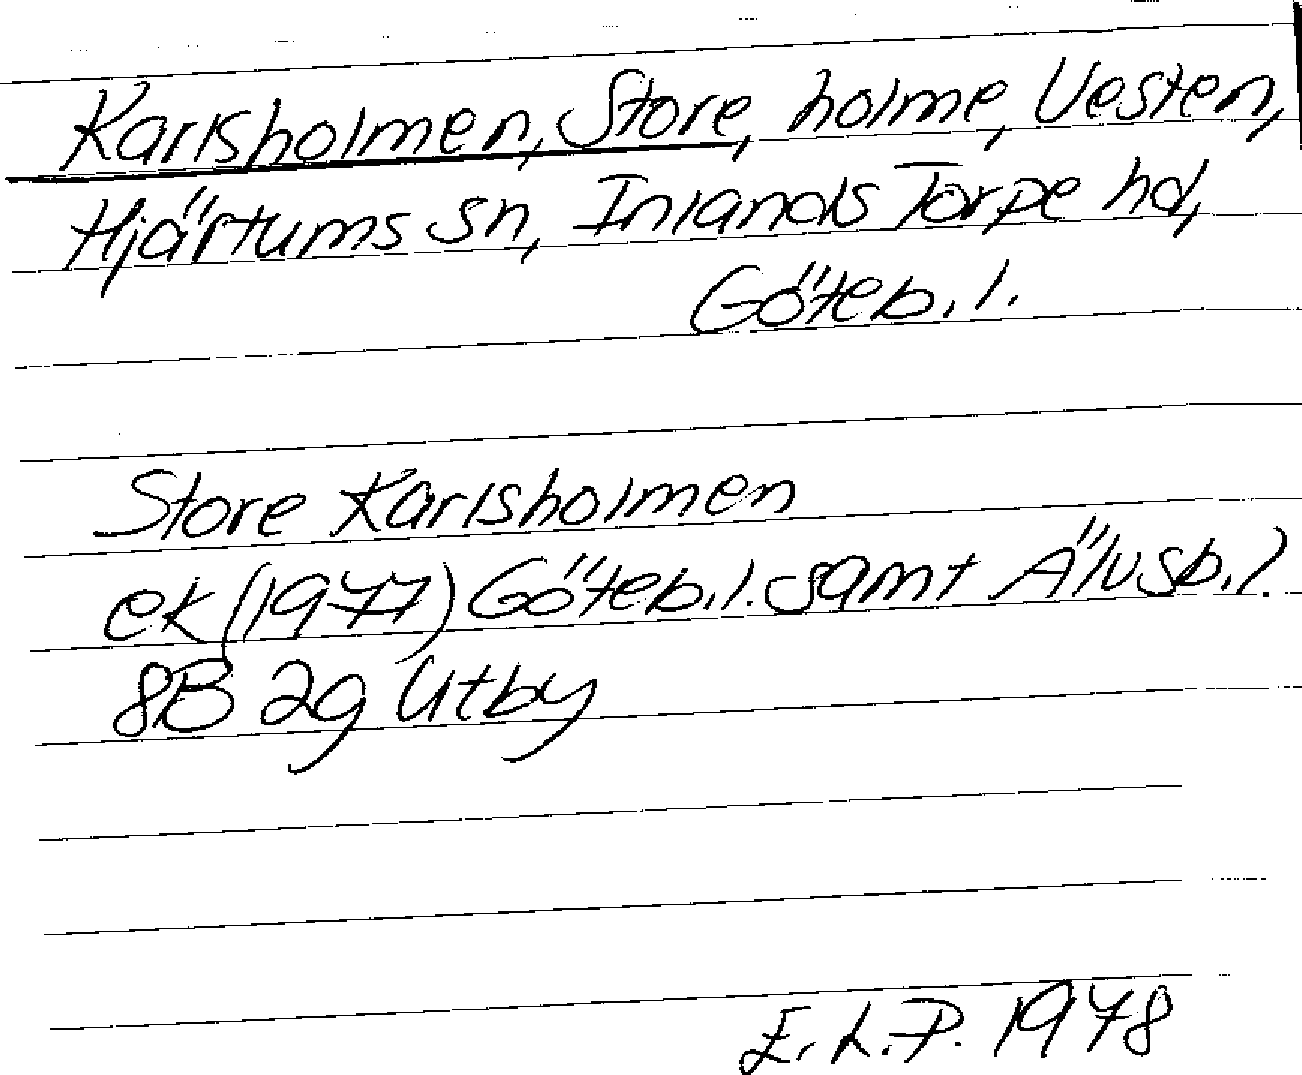 Karlsholmen, Store, holme, Vesten,
Hjärtums sn, Inlands Torpe hd,
Göteb. l.
Store Karlsholmen
ek (1977) Göteb. l. samt Älvsb. l.
8B 2g Utby
E. L. P. 1978